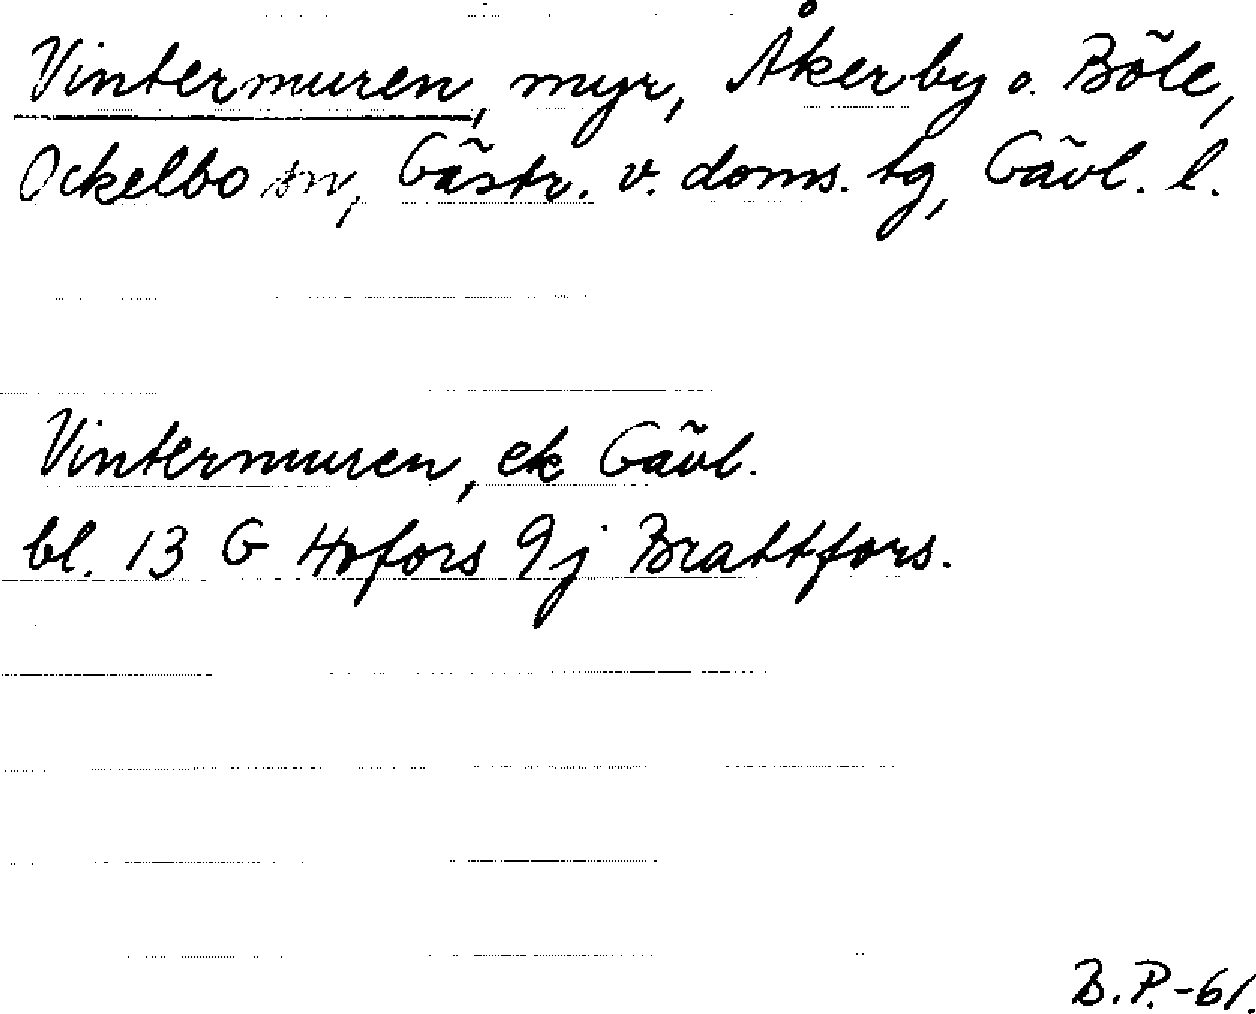 Vintermuren, myr, Åkerby o. Böle,
Ockelbo sn, Gästr. v. doms. tg, Gävl. l.
Vintermuren, ek Gävl.
bl. 13 G Hofors 9j Brattfors.
B.P.-61.